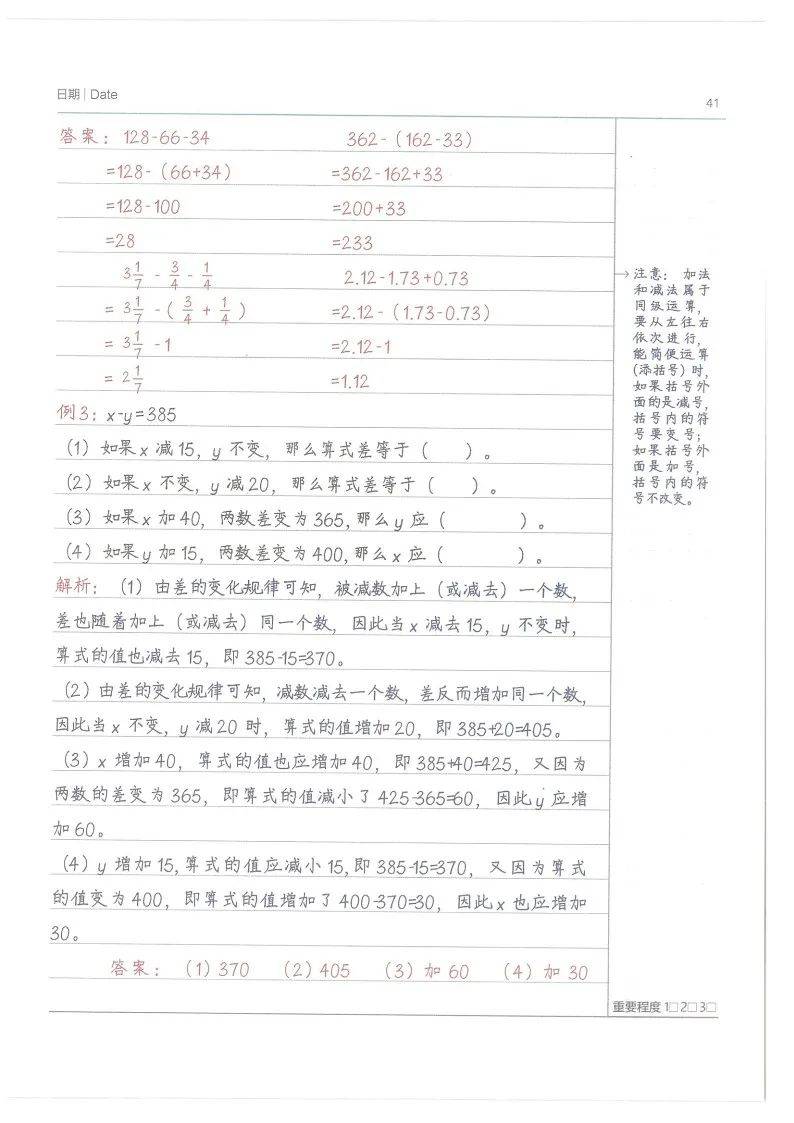 日期 | Date
41
答案： 128-66-34 362-（162-33）
=128-（66+34） =362-162+33
=128-100 =200+33
=28 =233
3 1/7 - 3/4 - 1/4 2.12-1.73+0.73
= 3 1/7 -（ 3/4 + 1/4 ） =2.12-（1.73-0.73）
= 3 1/7 -1 =2.12-1
= 2 1/7 =1.12
例3：x-y=385
（1）如果 x 减 15，y 不变，那么算式差等于（ ）。
（2）如果 x 不变，y 减 20，那么算式差等于（ ）。
（3）如果 x 加 40，两数差变为 365，那么 y 应（ ）。
（4）如果 y 加 15，两数差变为 400，那么 x 应（ ）。
解析：（1）由差的变化规律可知，被减数加上（或减去）一个数，
差也随着加上（或减去）同一个数，因此当 x 减去 15，y 不变时，
算式的值也减去 15，即 385-15=370。
（2）由差的变化规律可知，减数减去一个数，差反而增加同一个数，
因此当 x 不变，y 减 20 时，算式的值增加 20，即 385+20=405。
（3）x 增加 40，算式的值也应增加 40，即 385+40=425，又因为
两数的差变为 365，即算式的值减小了 425-365=60，因此 y 应增
加 60。
（4）y 增加 15，算式的值应减小 15，即 385-15=370，又因为算式
的值变为 400，即算式的值增加了 400-370=30，因此 x 也应增加
30。
答案：（1）370 （2）405 （3）加 60 （4）加 30
注意： 加法
和减法属于
同级运算，
要从左往右
依次进行，
能简便运算
(添括号)时，
如果括号外
面的是减号，
括号内的符
号要变号；
如果括号外
面是加号，
括号内的符
号不改变。
重要程度 1□ 2□ 3□